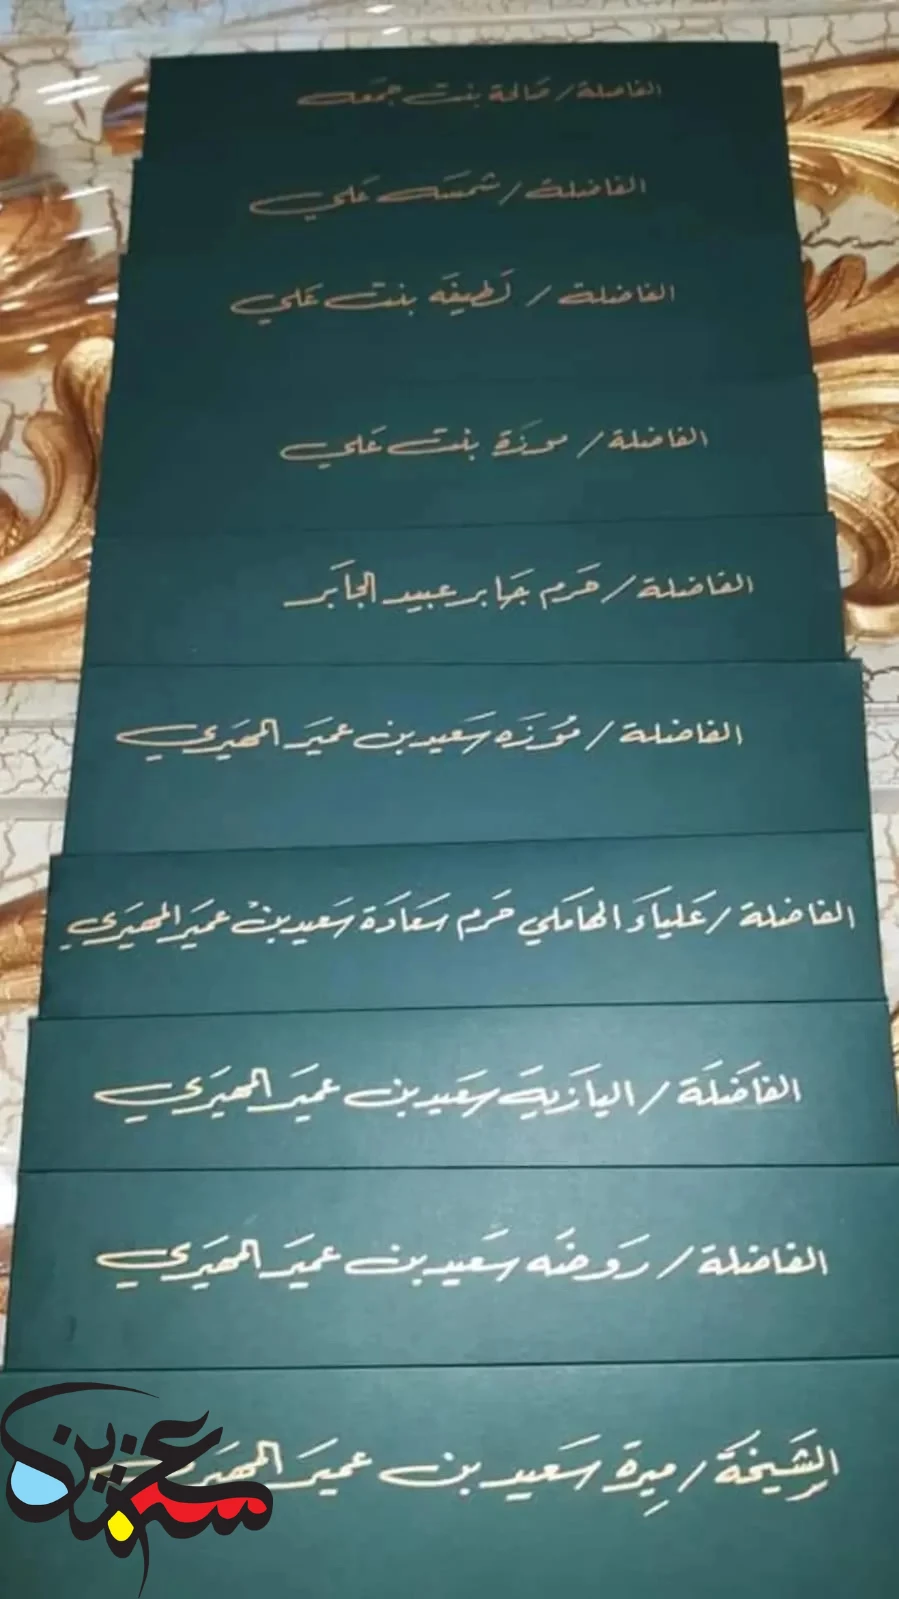 الفاضلة / صالحة بنت جمعه
الفاضلة / شمسه علي
الفاضلة / لطيفه بنت علي
الفاضلة / موزة بنت علي
الفاضلة / حرم جابر عبيد الجابر
الفاضلة / موزه سعيد بن عمير المهيري
الفاضلة / علياء الهاملي حرم سعادة سعيد بن عمير المهيري
الفاضلة / اليازية سعيد بن عمير المهيري
الفاضلة / روضه سعيد بن عمير المهيري
الشيخة / ميرة سعيد بن عمير المهيري